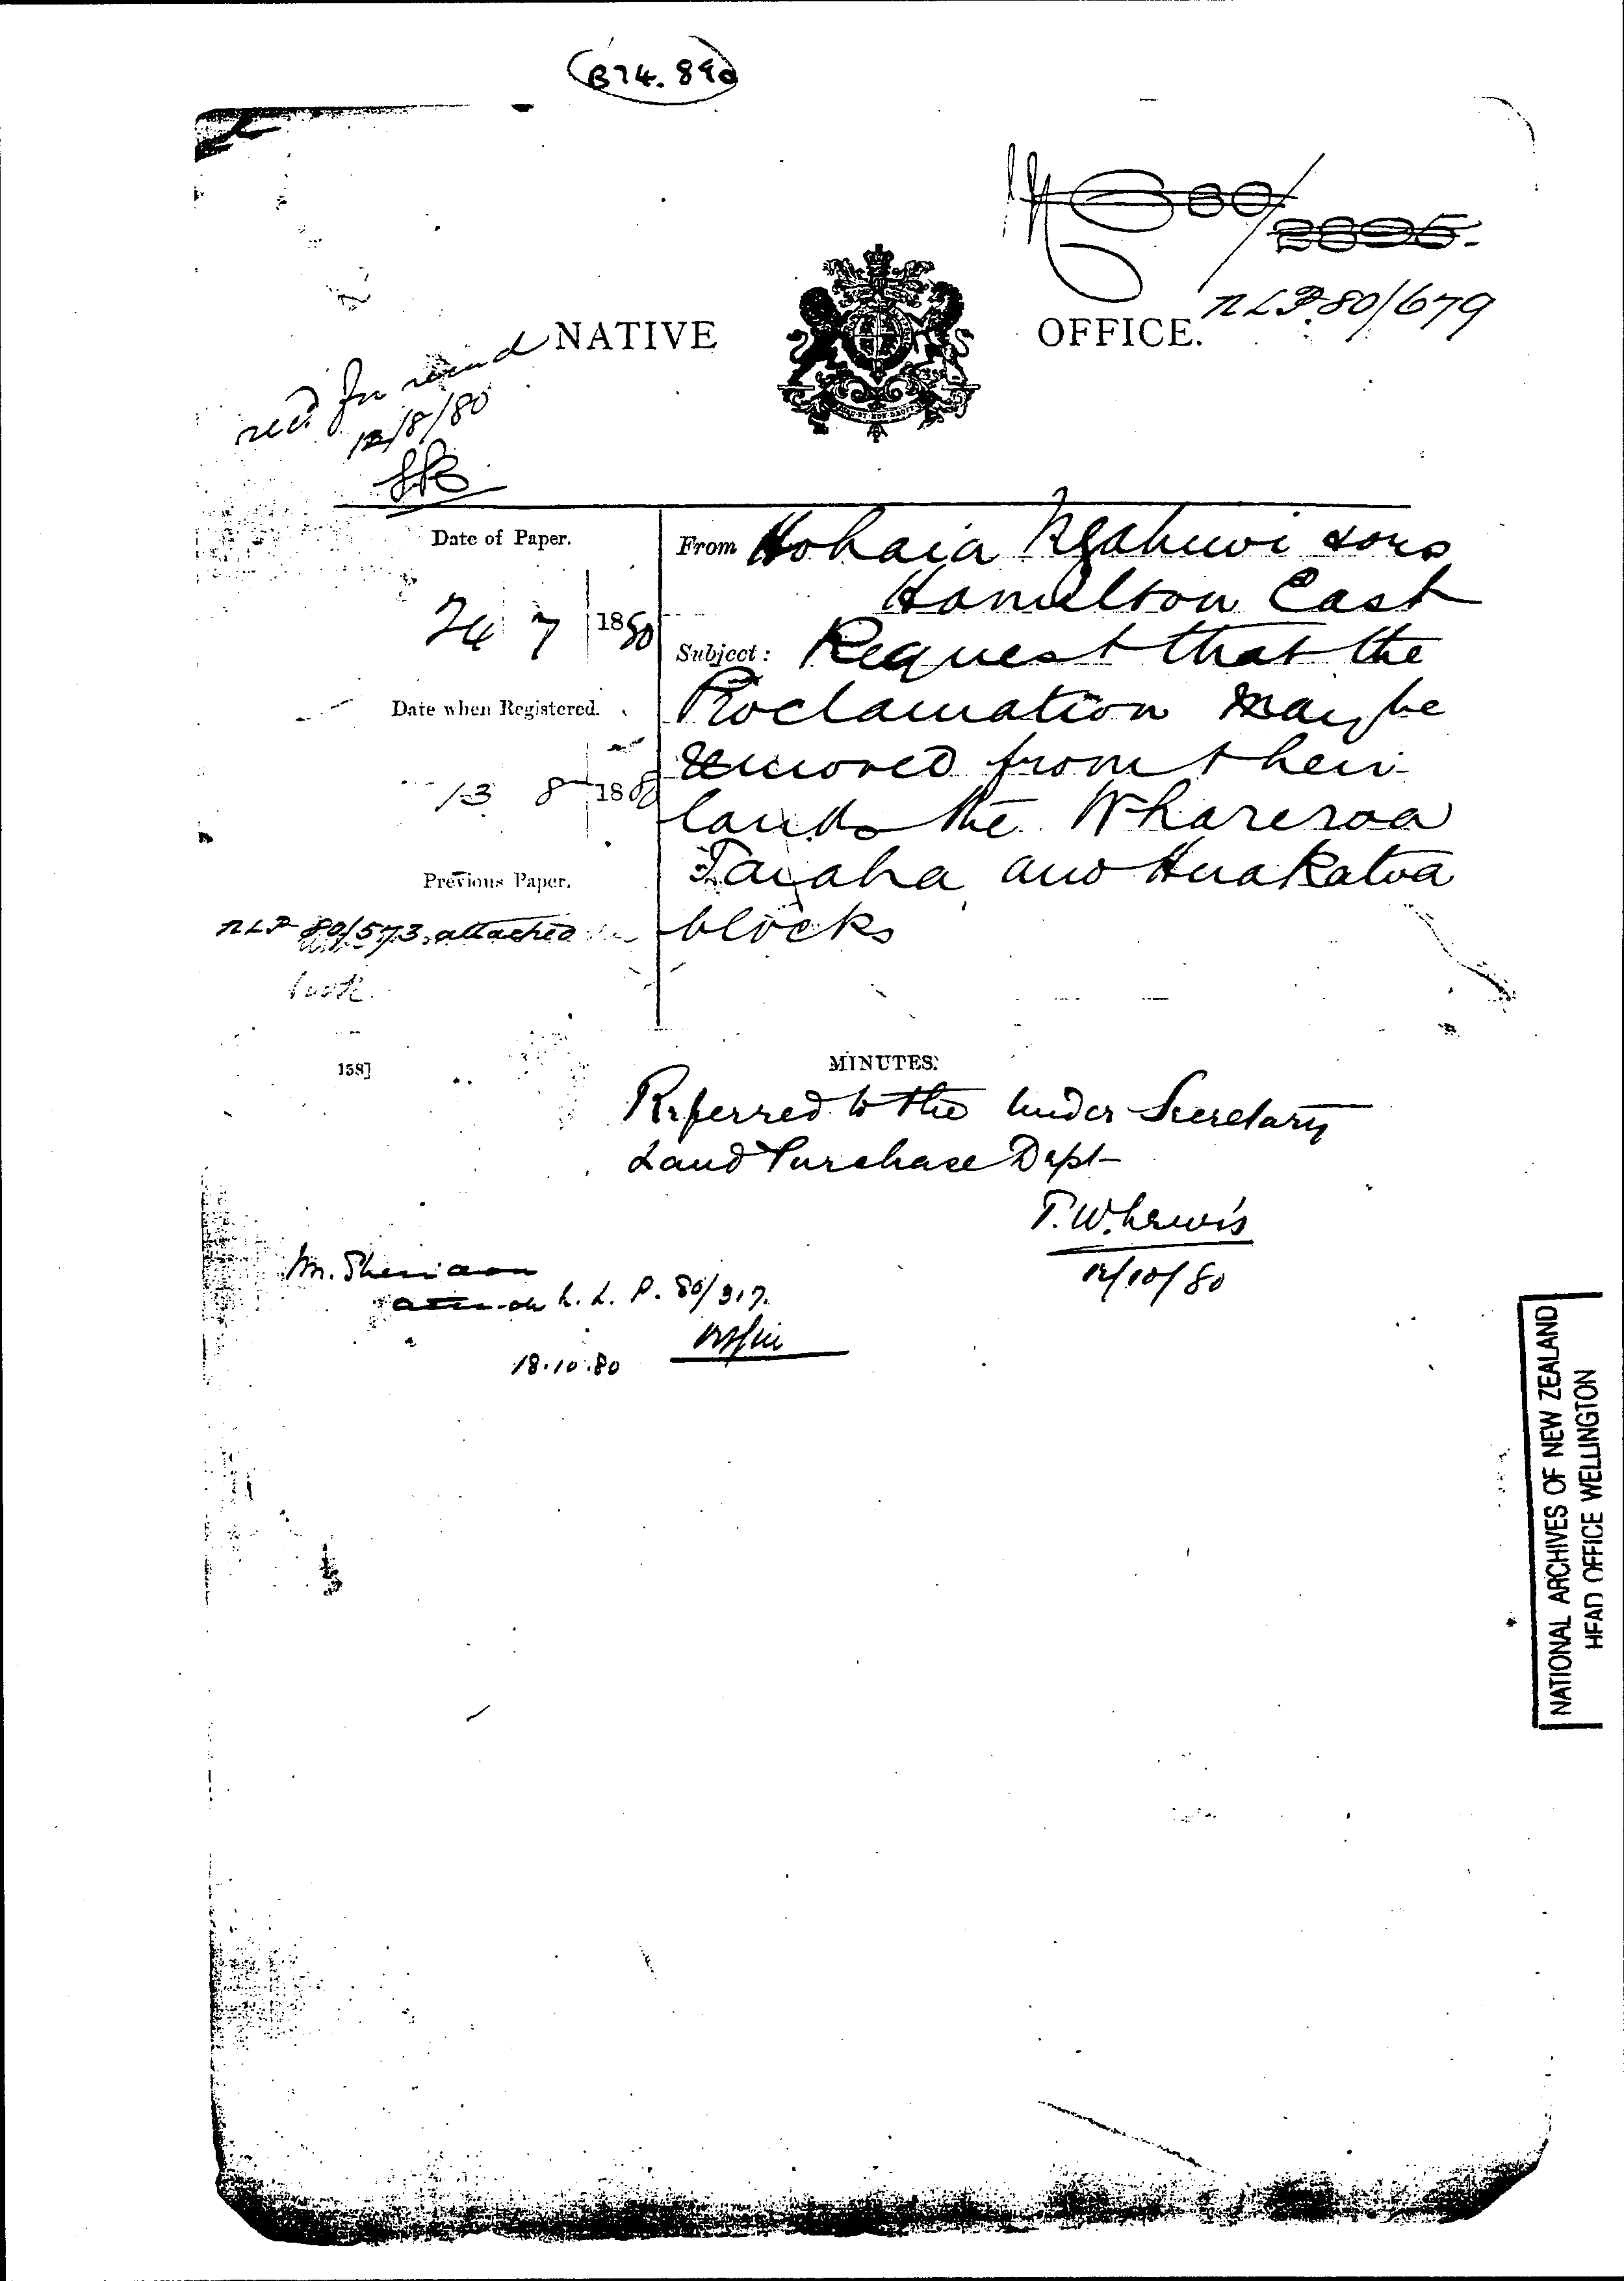 B74.89a
80/
2895.
NLP 80/679
NATIVE OFFICE.
recd for record
12/8/80
Date of Paper.
24 7 1880
From Hohaia Ngahuwi & ors
Hamilton East
Subject: Request that the
Proclamation may be
removed from their
lands the Whareroa
and Huakatoa
blocks
Date when Registered.
13 8 1880
Previous Paper.
NLP 80/573 attached
158]
MINUTES.
Referred to the Under Secretary
Land Purchase Dept
T.W. Lewis
12/10/80
Mr. Sheridan
80/317.
18.10.80
NATIONAL ARCHIVES OF NEW ZEALAND
HEAD OFFICE WELLINGTON